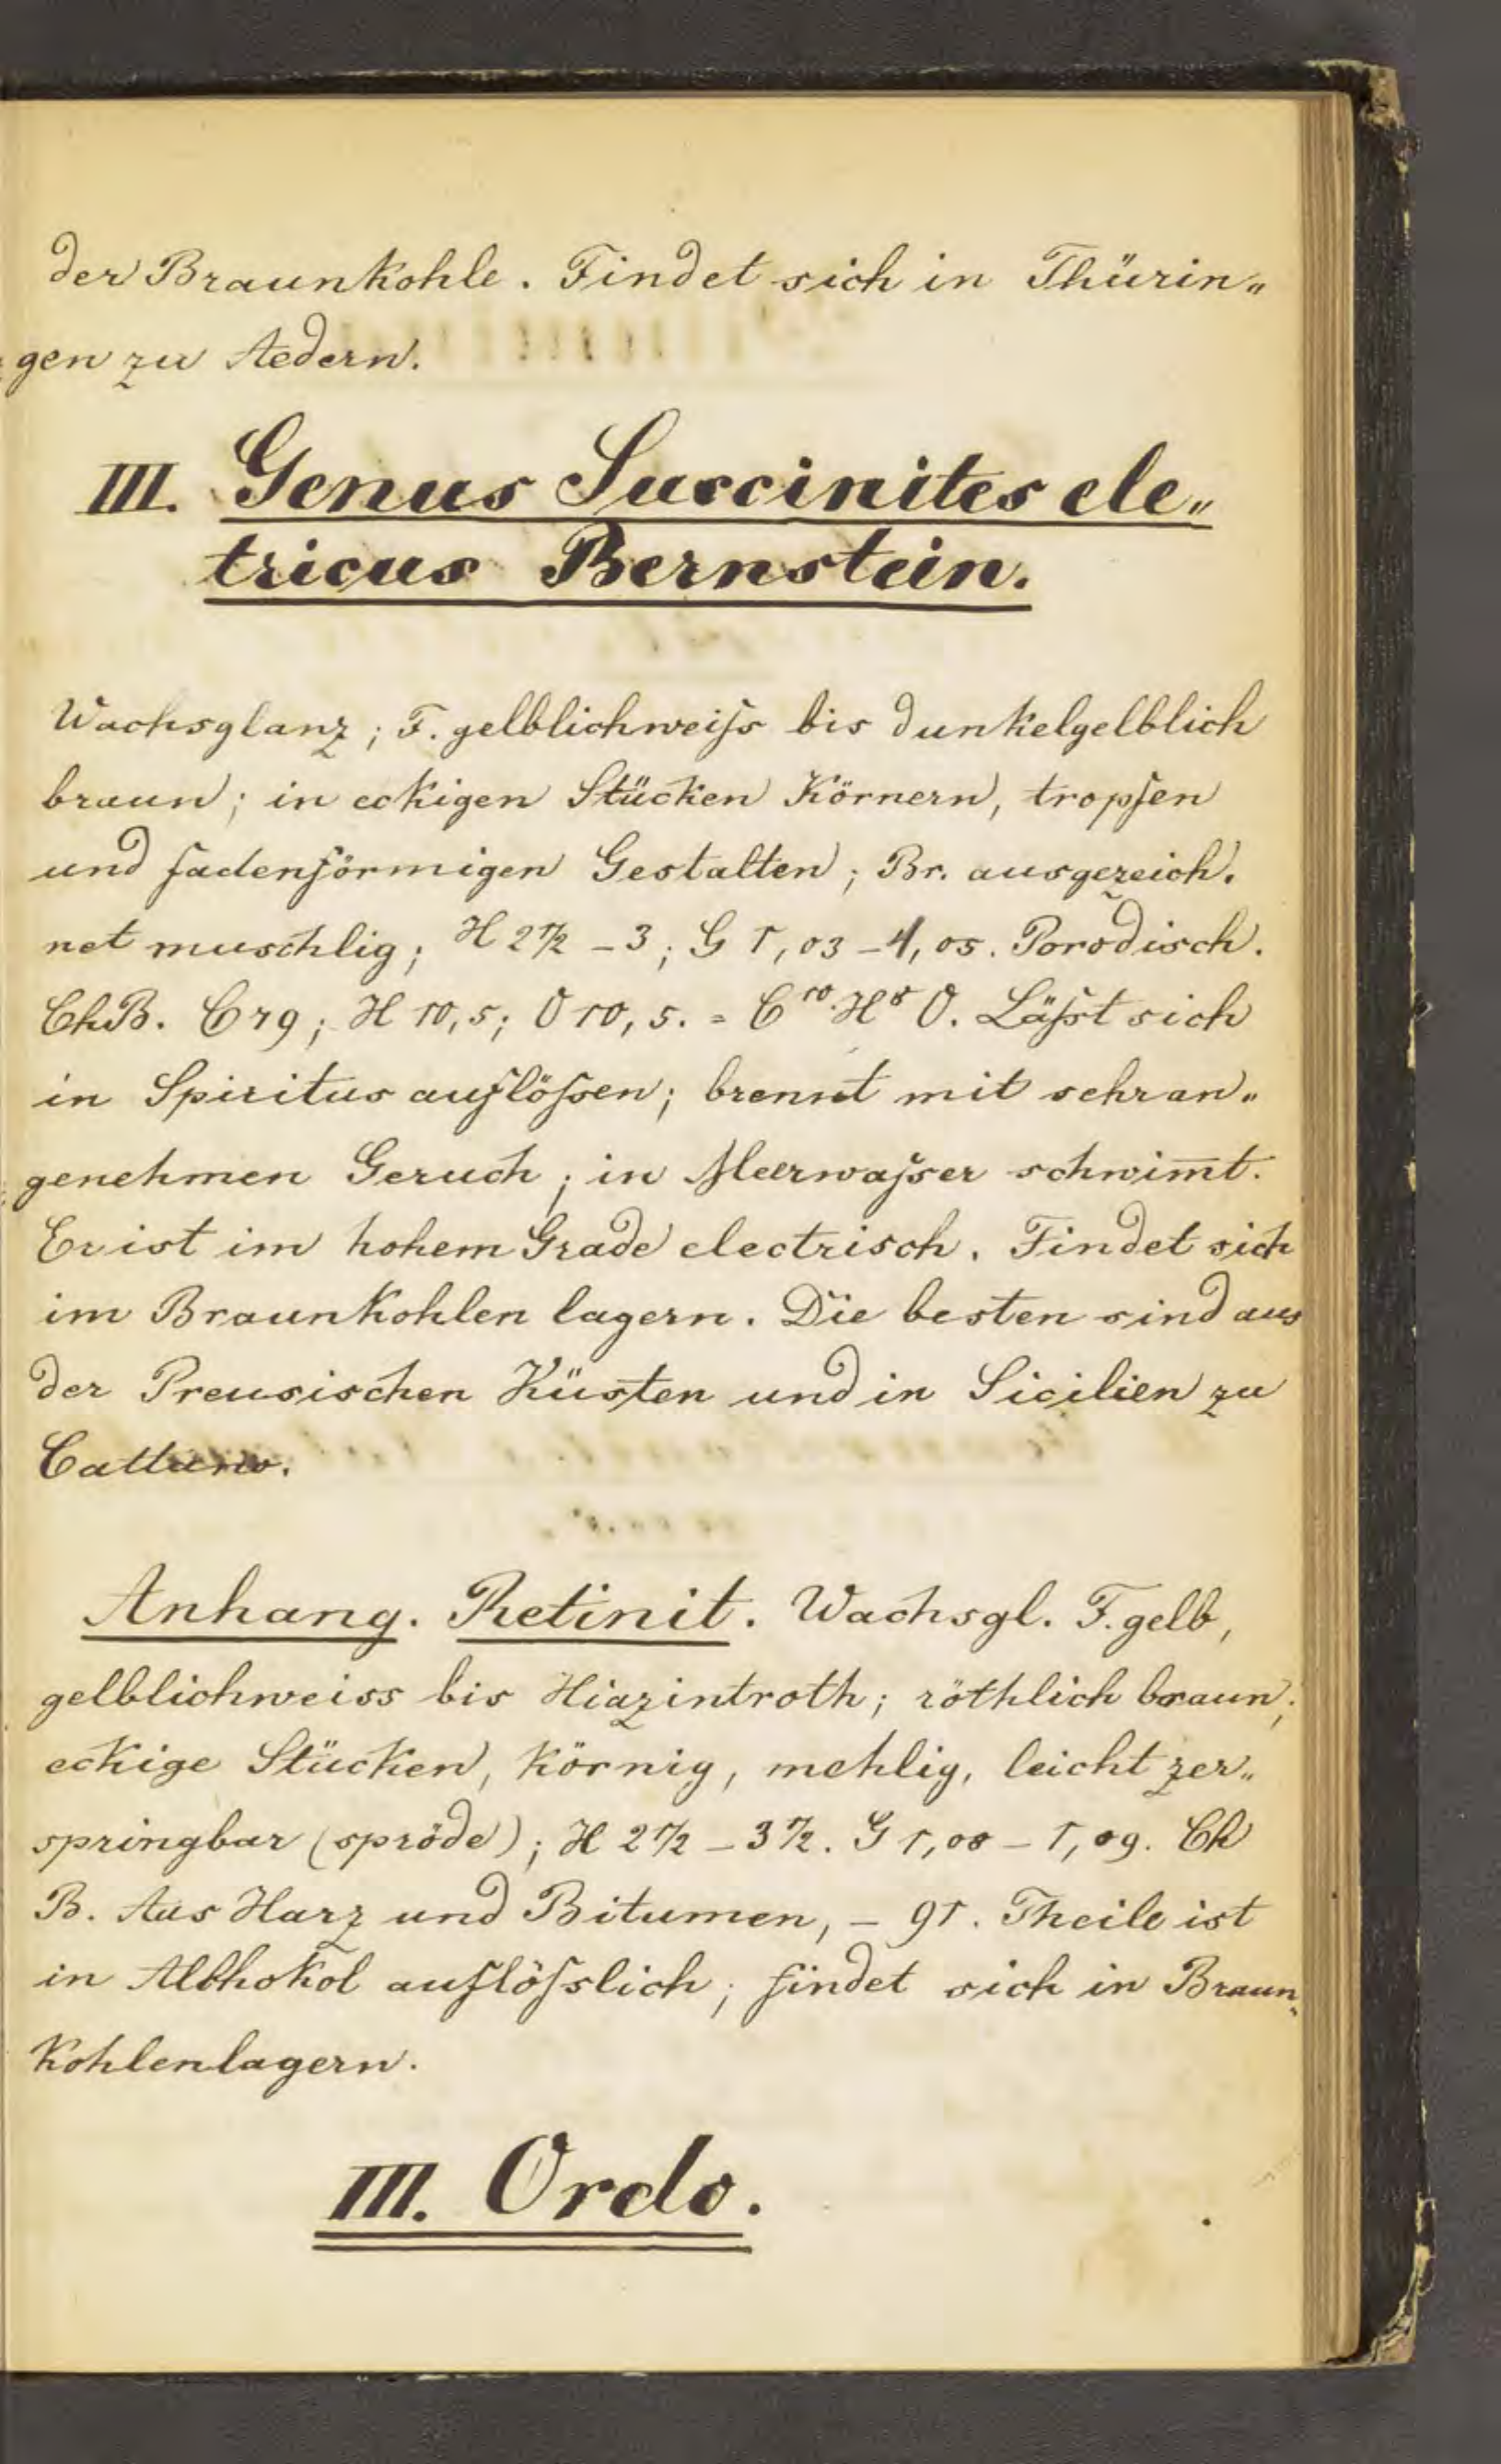 der Braunkohle. Findet sich in Thürin„
gen zu Aedern.
III. Genus Succinites ele„
tricus Bernstein.
Wachsglanz; F. gelblichweiſs bis dunkelgelblich
braun; in eckigen Stücken Körnern, tropfen
und fadenförmigen Gestalten; Br. ausgezeich.
net muschlig; H 2 1/2 – 3; G 1,03 – 1,05. Porodisch.
ChB. C 79; H 10,5; O 10,5. = C¹⁰ H⁸ O. Läſst sich
in Spiritus auflöſsen; brennt mit sehr an„
genehmen Geruch; in Meerwaſser schwim̅t.
Er ist im hohem Grade electrisch. Findet sich
im Braunkohlen lagern. Die besten sind aus
der Preusischen Küsten und in Sicilien zu
Anhang. Retinit. Wachsgl. F. gelb,
gelblichweiss bis Hiazintroth; röthlich braun;
eckige Stücken, körnig, mehlig, leicht zer„
springbar (spröde); H 2 1/2 – 3 1/2. G 1,08 – 1,09. Ch
B. Aus Harz und Bitumen, – 91. Theile ist
in Alkhokol auflöſslich; findet sich in Braun„
kohlenlagern.
III. Ordo.